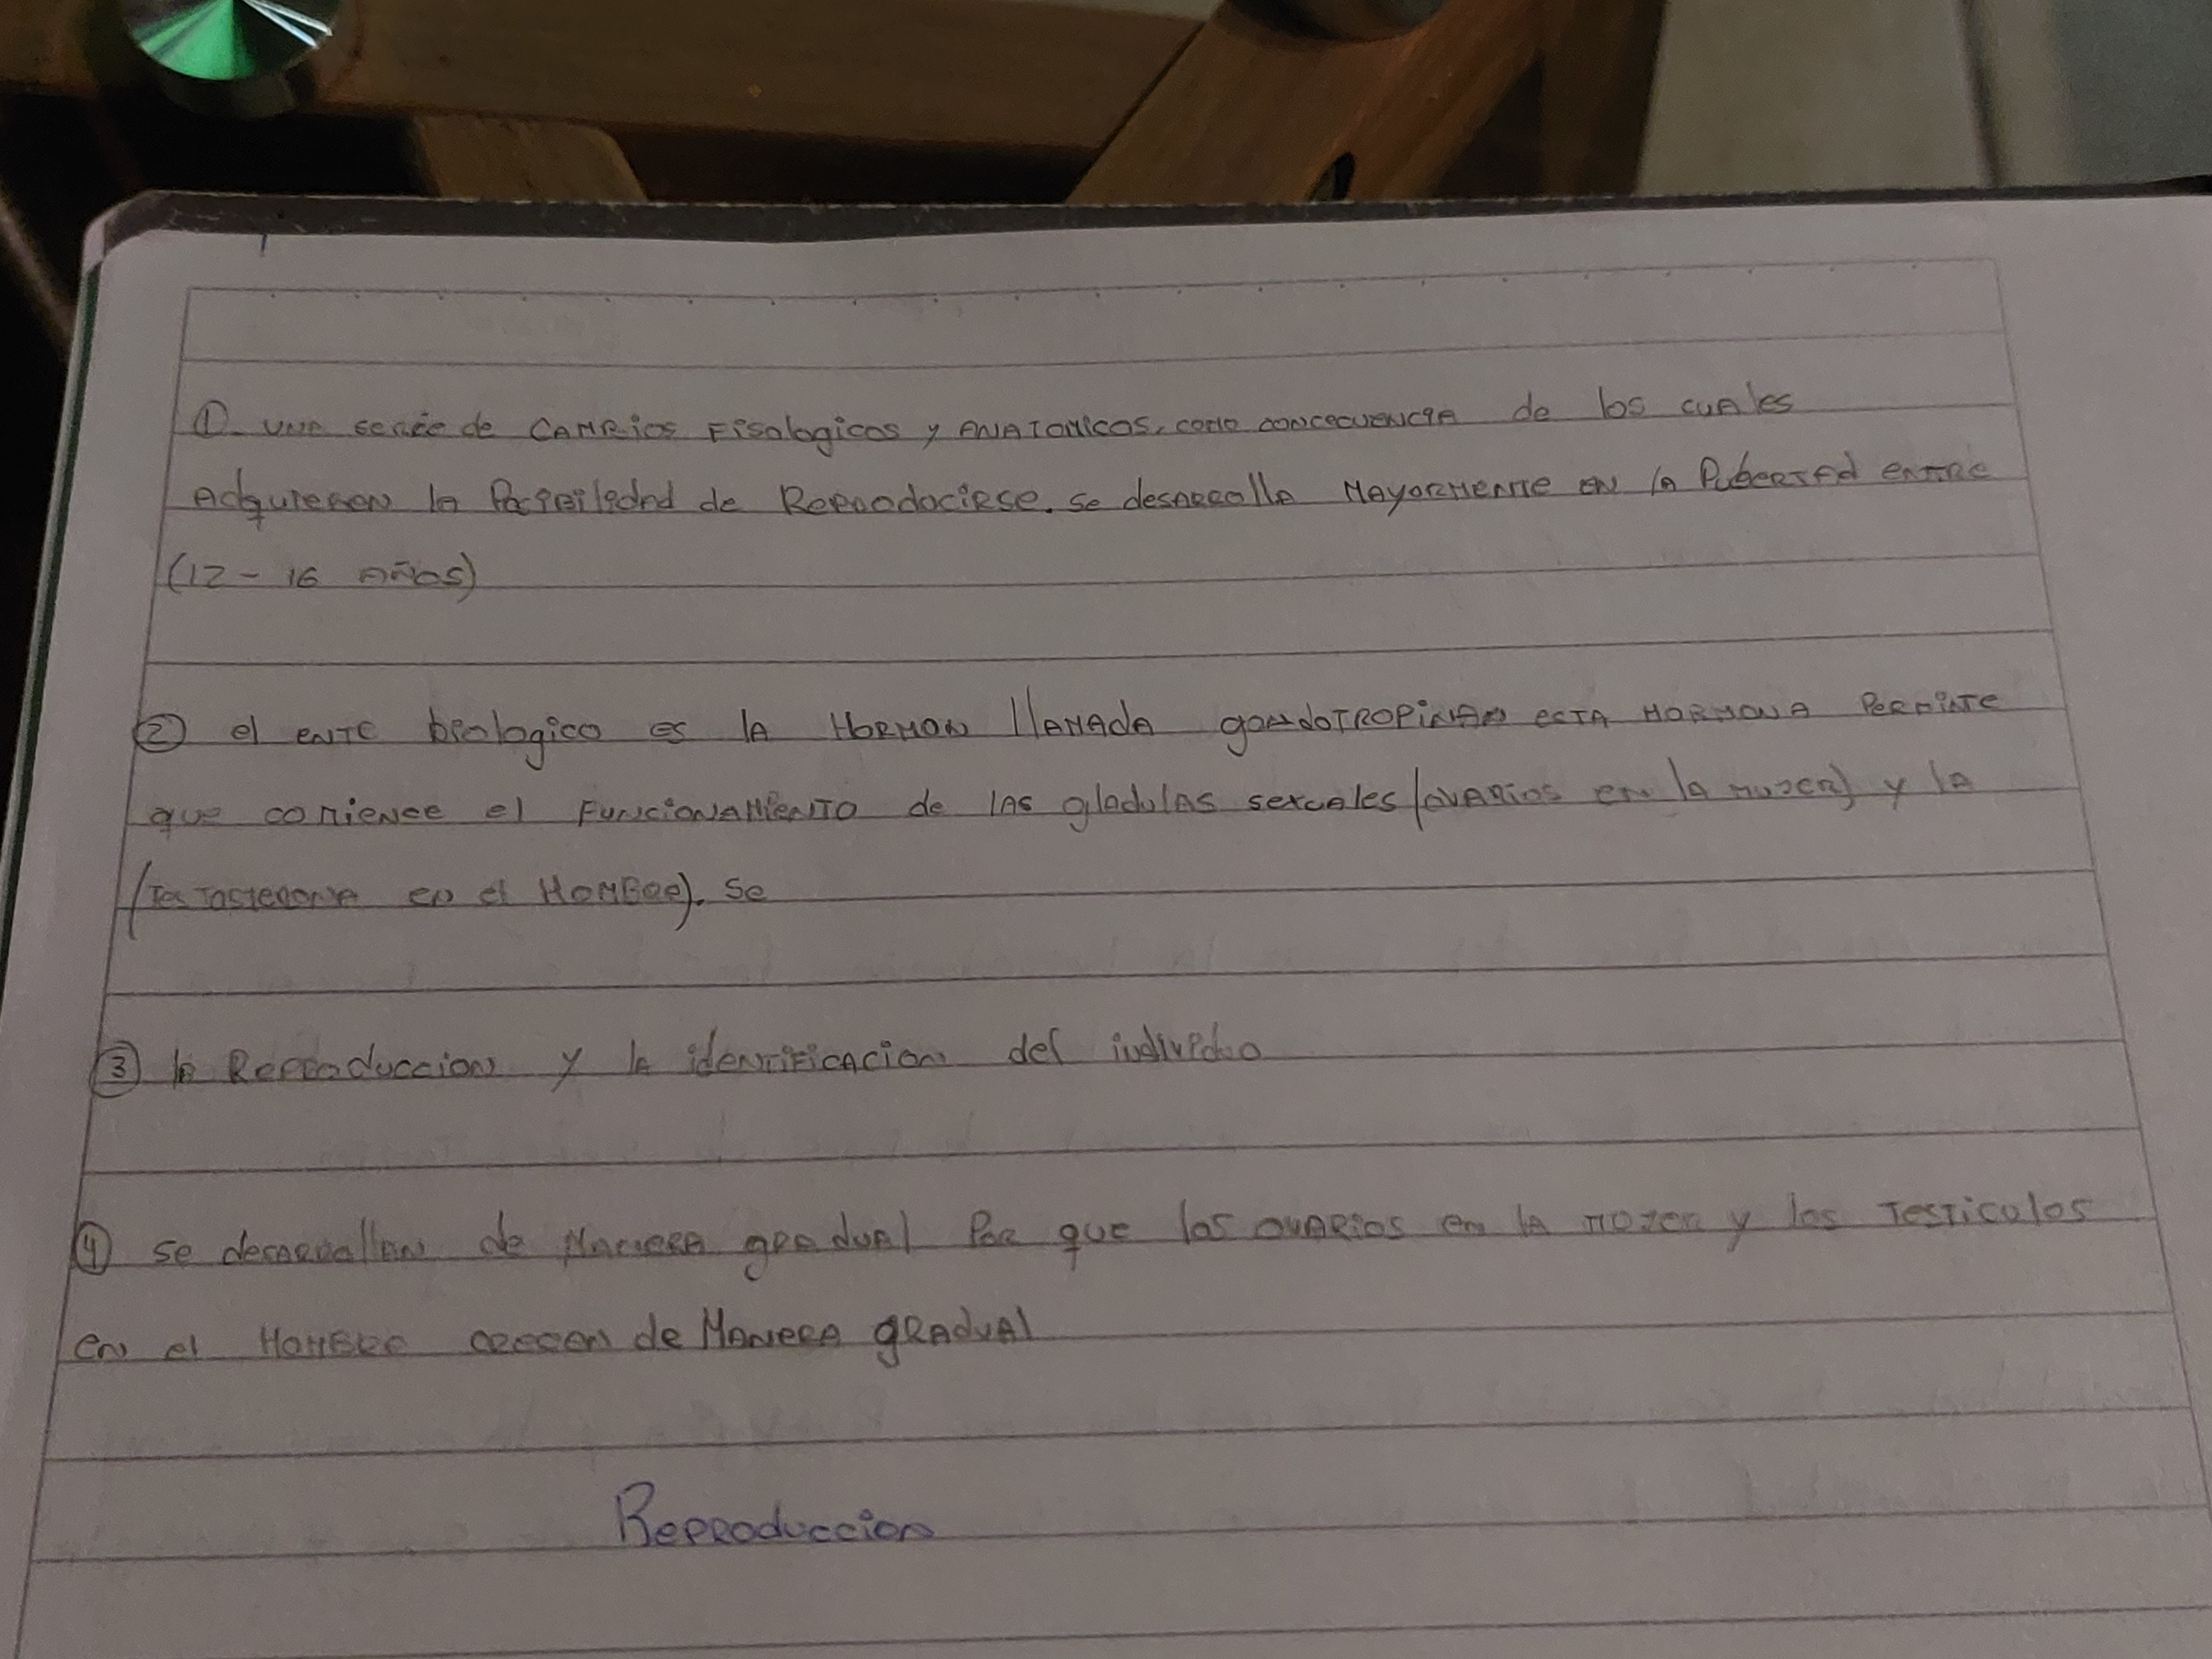 ① una serie de CAMBios Fisologicos y ANATOMicos. como concecuencia de los cuales
Adquieren la Posibilidad de Reproducirse. se desarrolla Mayormente en la Pubertad entre
(12 - 16 Años)
② el ente biologico es la HORMON llamada gonadotropina esta HORMONA Permite
que comience el Funcionamiento de las gladulas sexuales (ovarios en la mujer) y la
(testosterona en el HOMBRe). Se
③ la Reproduccion y la identificacion del individuo
④ se desarrollan de Manera gradual Por que los ovarios en la mujer y los Testiculos
en el HOMBRE crecen de Manera gradual
Reproduccion